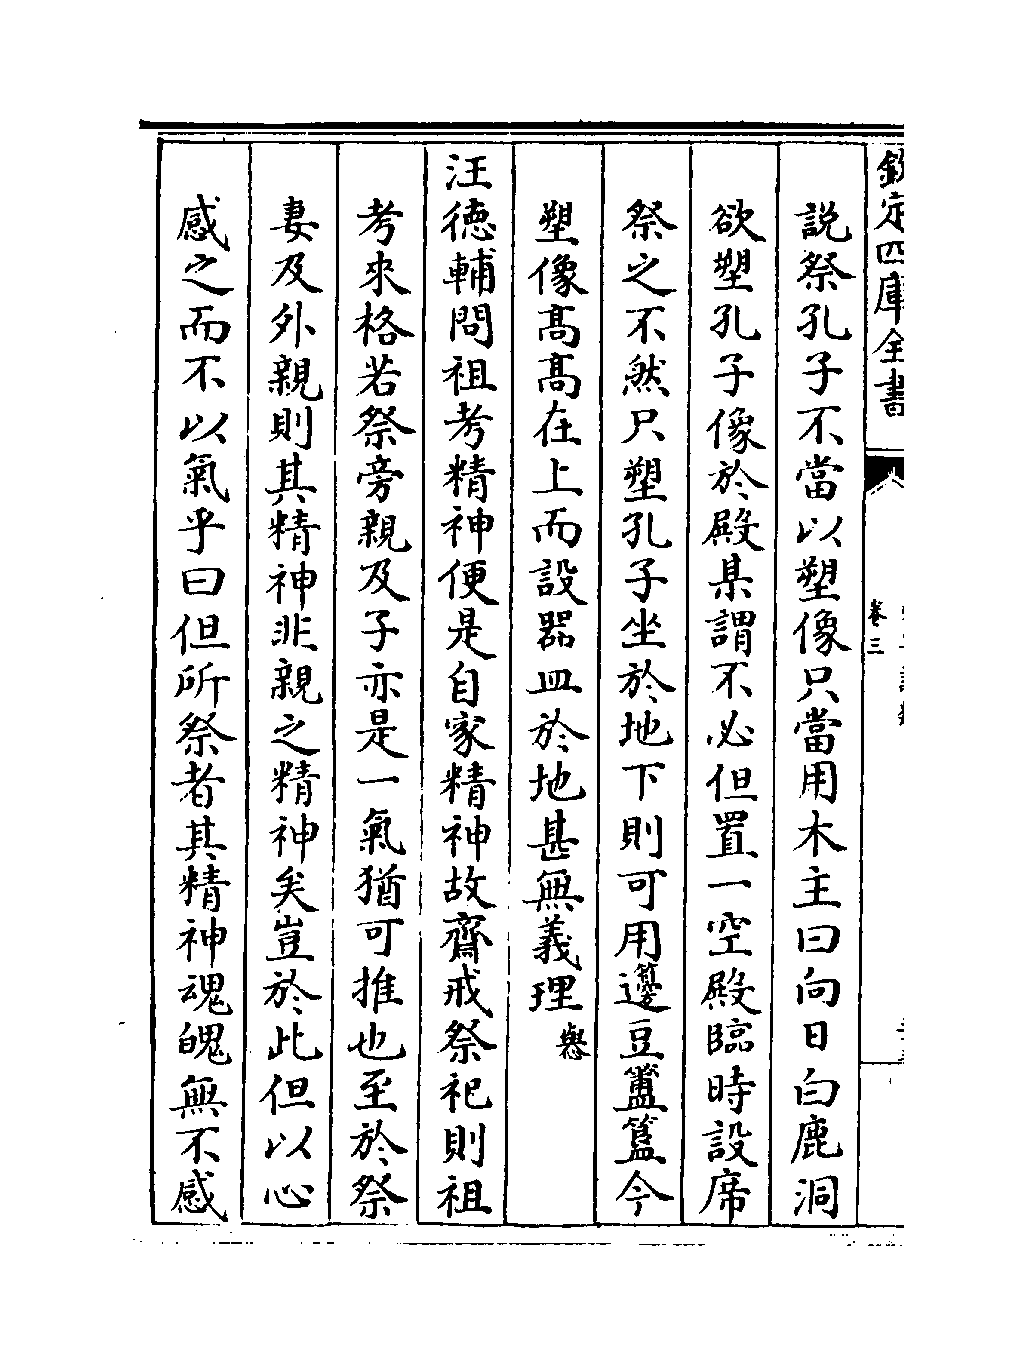 欽定四庫全書
卷三
說祭孔子不當以塑像只當用木主曰向日白鹿洞
欲塑孔子像於殿某謂不必但置一空殿臨時設席
祭之不然只塑孔子坐於地下則可用籩豆簠簋今
塑像髙髙在上而設器皿於地甚無義理㽦
汪徳輔問祖考精神便是自家精神故齋戒祭祀則祖
考來格若祭旁親及子亦是一氣猶可推也至於祭
妻及外親則其精神非親之精神矣豈於此但以心
感之而不以氣乎曰但所祭者其精神魂魄無不感